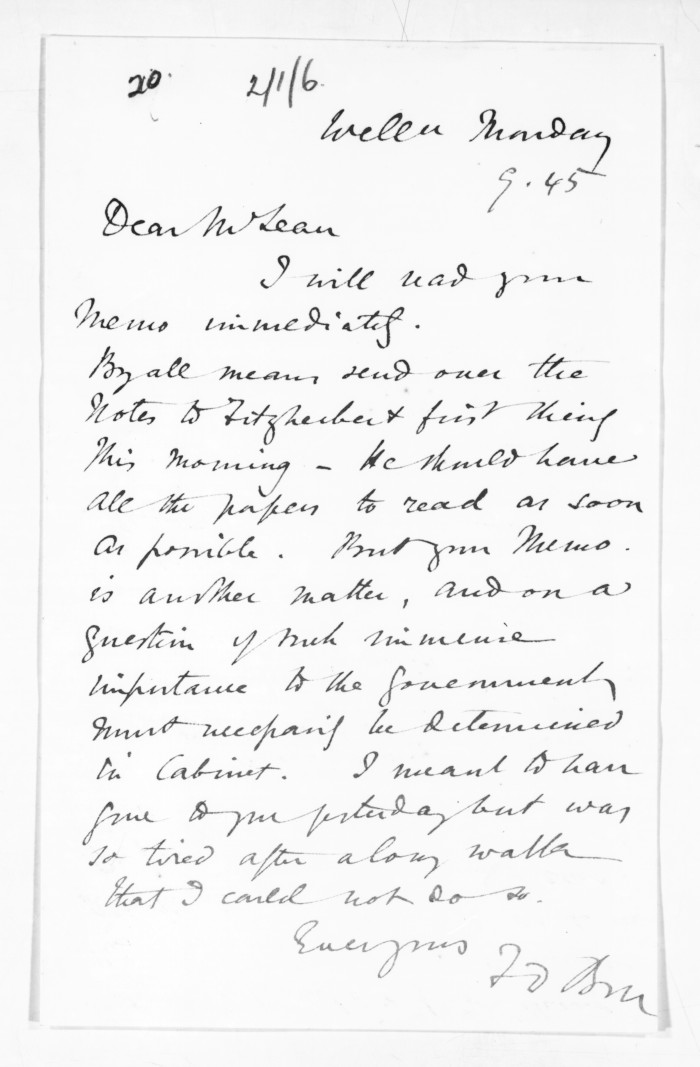 20. 2/1/6.
Welln Monday
9.45
Dear McLean
I will read your
Memo immediately.
By all means send over the
Notes to Fitzherbert first thing
this morning - He should have
all the papers to read as soon
as possible. But your Memo.
is another matter, and on a
question of such immense
importance to the Government
must necessarily be determined
in Cabinet. I meant to have
gone to you yesterday but was
so tired after a long walk
that I could not do so.
Ever yours
F D Bell